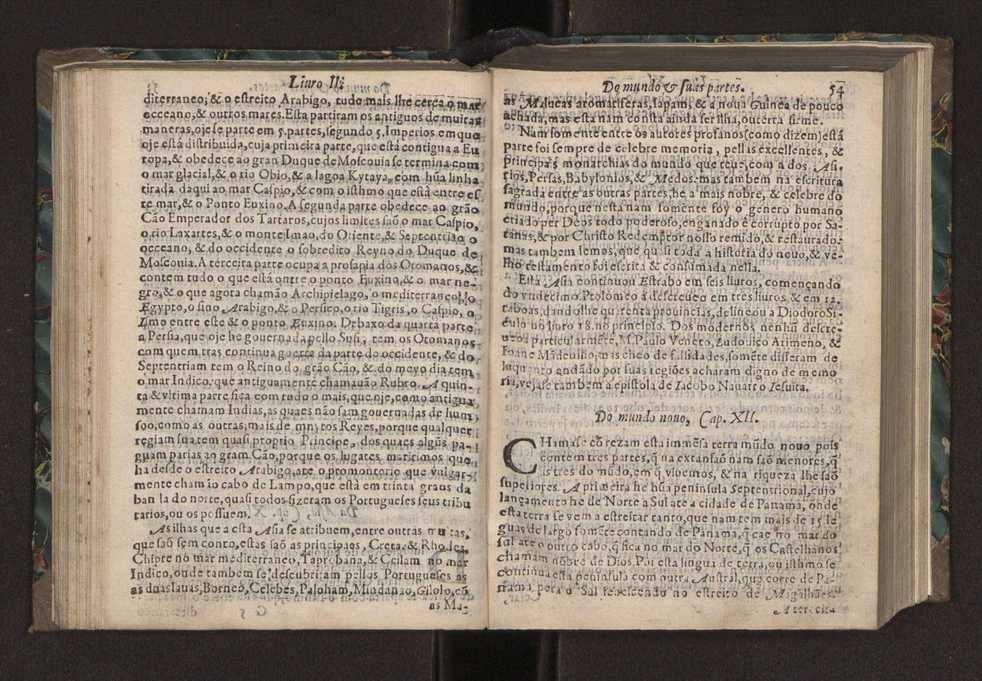 Liuro II.
diterraneo, & o estreito Arabigo, tudo mais lhe cerca o mar
occeano, & outros mares. Esta partiram os antiguos de muitas
maneras, oje se parte em 5. partes, segundo 5. Imperios em que
oje está distribuida, cuja primeira parte, que está contigua a Eu
ropa, & obedece ao gran Duque de Moscouia se termina com
o mar glacial, & o rio Obio, & a lagoa Kytaya, com hũa linha
tirada daqui ao mar Caspio, & com o isthmo que está entre es
te mar, & o Ponto Euxino. A segunda parte obedece ao grão
Cão Emperador dos Tartaros, cujos limites saõ o mar Caspio,
o rio Laxartes, & o monte Imao, do Oriente, & Septentrião o
occeano, & do occidente o sobredito Reyno do Duque de
Moscouia. A terceita parte ocupa a prosapia dos Otomanos, &
contem tudo o que está ontre o ponto Euxino, & o mar ne-
gro, & o que agora chamão Archipielago, o mediterraneo, o
Egypto, o sino Arabigo, & o Persico, o rio Tigris, o Caspio, o
Ismo entre este & o ponto Euxino. Debaxo da quarta parte
a Persia, que oje he gouernada pello Sufi, tem os Otomanos
com quem tras continua guerra da parte do occidente, & do
Septentriam tem o Reino do grão Cão, & do meyo dia tem
o mar Indico, que antiguamente chamauão Rubro. A quin-
ta & vltima parte fica com tudo o mais, que oje, como antigua
mente chamam Indias, as quaes não sam gouernadas de hum
soo, como as outras, mais de muytos Reyes, porque qualquer
regiam sua tem quasi proprio Principe, dos quaes algũs pa-
guam parias ao gram Cão, porque os lugares maritimos que
ha desde o estreito Arabigo, ate o promontorio que vulgar-
mente chamão cabo de Lampo, que está em trinta graos da
banda do norte, quasi todos fizeram os Portugueses seus tribu
tarios, ou os possuem.
As ilhas que a esta Asia se atribuem, entre outras muitas,
que saõ sem conto, estas saõ as principaes, Creta, & Rhodes,
Chipre no mar mediterraneo, Taprobana, & Ceilam no mar
Indico, onde tambem se descubriram pellos Portugueses as
as duas Iauas, Borneo, Celebes, Paloham, Mindanao, Gilolo, cõ
as Ma-
Do mundo & suas partes. 54
as Malucas aromatiferas, Iapam, & a noua Guinea de pouco
achada, mas esta nam consta ainda ser ilha, ou terra firme.
Nam somente entre os autores profanos (como dizem) está
parte foi sempre de celebre memoria, pellas excellentes, &
principaes monarchias do mundo que teue, com a dos Asi-
rios, Persas, Babylonios, & Medos: mas tambem na escritura
sagrada entre as outras partes, he a mais nobre, & celebre do
mundo, porque nesta nam somente foy o genero humano
criado per Deos todo poderoso, enganado & corrupto por Sa-
tanas, & por Christo Redemptor nosso remido, & restaurado:
mas tambem lemos, que quasi toda a historia do nouo, & ve-
lho testamento foi escrita & consumada nella.
Esta Asia continuou Estrabo em seis liuros, começando
do vndecimo. Ptolomeo a descreueo em tres liuros, & em 12.
taboas, dandolhe quarenta prouincias, delineou a Diodoro Si-
culo no liuro 18. no principio. Dos modernos nenhũ descre-
ueo particularmẽte, M. Paulo Veneto, Ludouiço Arimeno, &
Ioane Mãdeuilho, mais cheo de fabulidades, sómẽte disseram de
 andãdo por suas regiões acharam digno de memo
ria, vejase tambem a epistola de Iacobo Nauarro Iesuita.
Do mundo nouo, Cap. XII.
CHamase cõ rezam esta imẽsa terra mũdo nouo pois
contem tres partes, q̃ na extansaõ nam saõ menores, q̃
as tres do mũdo, em q̃ viuemos, & na riqueza lhe saõ
superiores. A primeira he hũa peninsula Septentrional, cujo
lançamento he de Norte a Sul ate a cidade de Panama, onde
esta terra se vem a estreitar tanto, que nam tem mais de 15 le
guas de largo somẽte contando de Panama, q̃ cae no mar do
sul ate o outro cabo, q̃ fica no mar do Norte, q̃ os Castelhanos
chamam nobre de Dios. Por esta lingua de terra, ou isthmo se
continua esta peninsula com outra Austral, que corre de Pa-
nama pera o Sul fenescendo no estreito de Magalhães.
A terceira